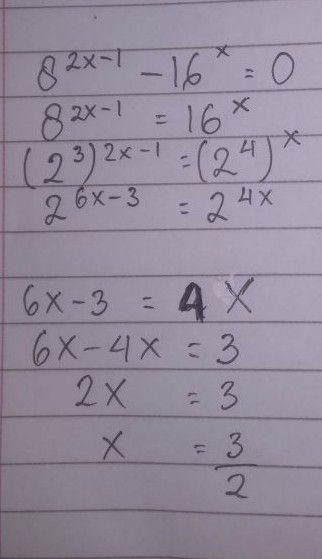 8^{2x-1} - 16^x = 0
8^{2x-1} = 16^x
(2^3)^{2x-1} = (2^4)^x
2^{6x-3} = 2^{4x}
6x-3 = 4x
6x-4x = 3
2x = 3
x = 3/2